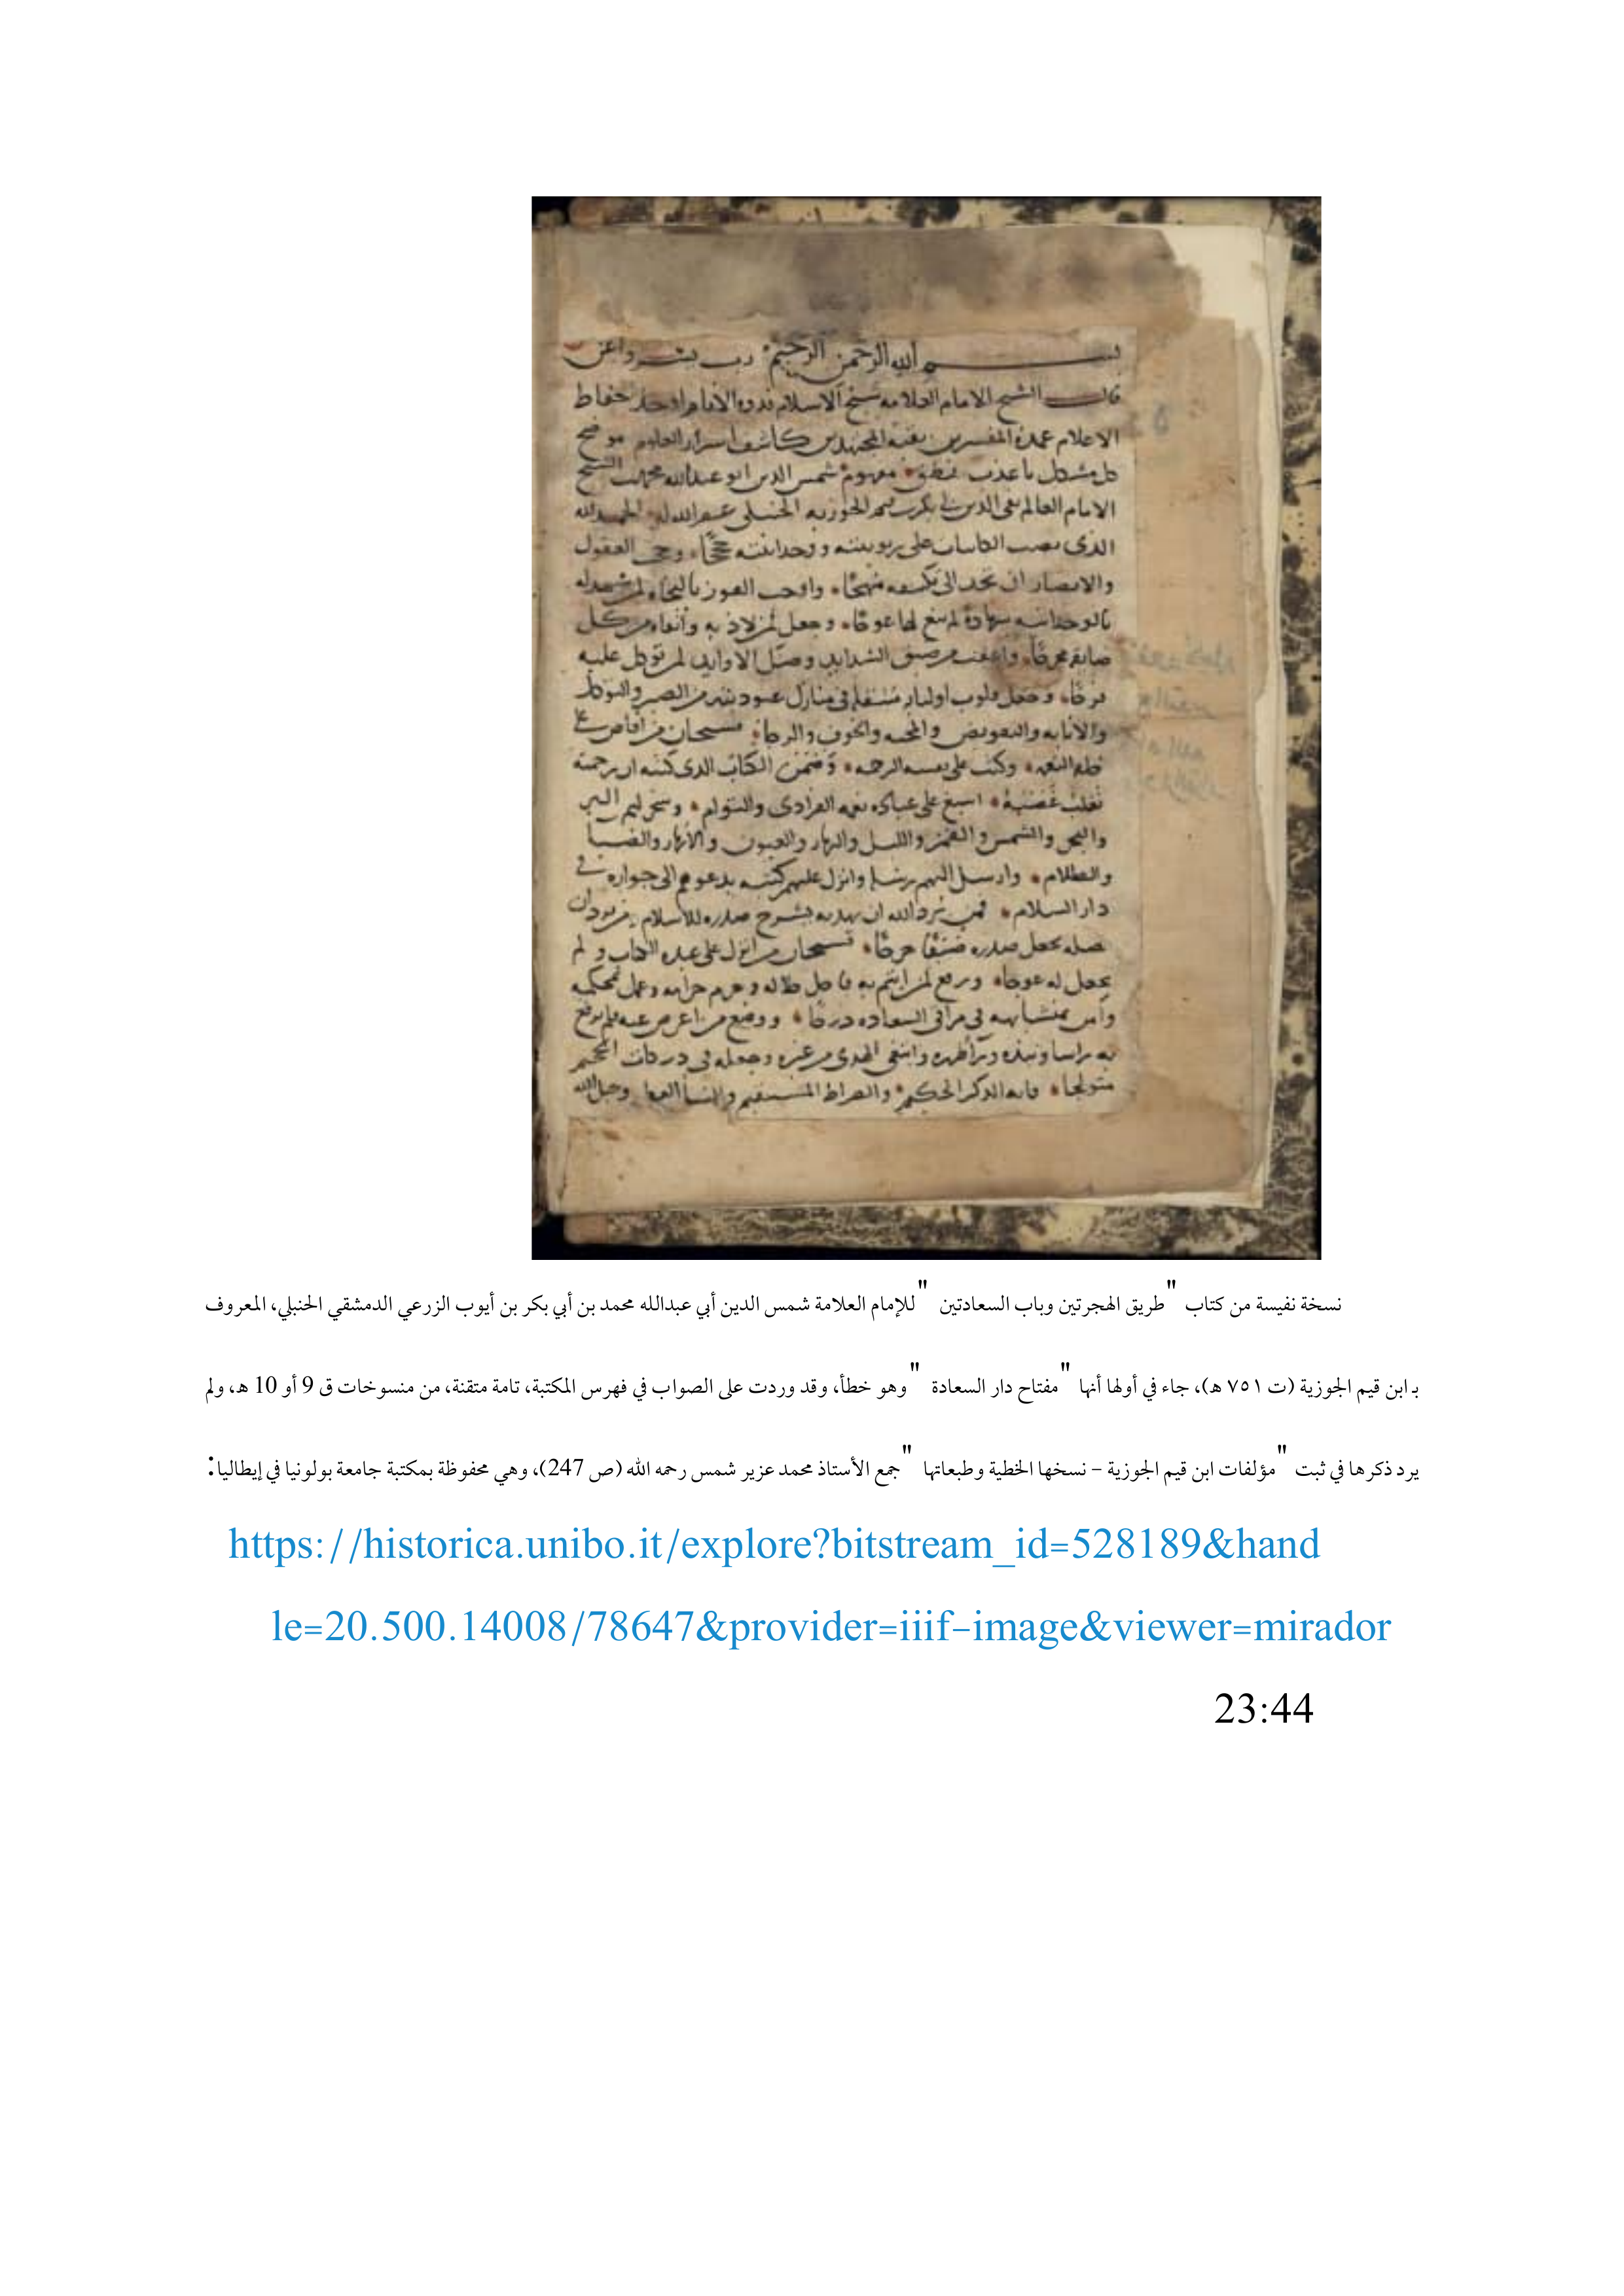 بسم الله الرحمن الرحيم رب يسر واعن
قال الشيخ الامام العلامه شيخ الاسلام قدوة الانام اوحد حفاظ
الاعلام عمدة المفسرين بقية المجتهدين كاشف اسرار العلوم موضح
كل مشكل باعذب منطق مفهوم شمس الدين ابو عبدالله محمد الشيخ
الامام العالم تقي الدين ابي بكر قيم الجوزيه الحنبلي الحمد لله
الذى نصب الكاينات على ربوبيته و وحدانيته حججًا وحجب العقول
والابصار ان تجد الى تكييفه منهجًا واوجب الفوز بالنجاه لمن شهد له
بالوحدانيه شهادة لم يبغ لها عوجًا وجعل لمن لاذ به وأتقاه من كل
ضايقه مخرجًا واعقب من ضيق الشدايد وضنك الاوابد لمن توكل عليه
فرجًا وجعل قلوب اوليايه متنقله في منازل عبوديته من الصبر والتوكل
والانابه والتفويض والمحبه والخوف والرجا فسبحان من افاض على
خلقه النعمه وكتب على نفسه الرحمه وضمن الكتاب الذى كتبه ان رحمته
تغلب غضبه اسبغ على عباده نعمه الفرادى والتوام وسخر لهم البر
والبحر والشمس والقمر والليل والنهار والعيون والانهار والضيا
والظلام وارسل اليهم رسله وانزل عليهم كتبه يدعوهم الى جواره في
دار السلام فمن يرد الله ان يهديه يشرح صدره للاسلام ومن يرد ان
يضله يجعل صدره ضيقًا حرجًا فسبحان من انزل على عبده الكتاب ولم
يجعل له عوجا ورفع لمن ايتم به فاحل حلاله وحرم حرامه وعمل بمحكمه
وآمن بمتشابهه في مراقي السعاده درجًا ووضع من اعرض عنه فلم يرفع
به راسا ونبذه ورآ ظهره وابتغى الهدى من غيره وجعله في دركات الجحيم
متولجا فانه الذكر الحكيم والصراط المستقيم والنبأ العظيم وحبل الله
نسخة نفيسة من كتاب "طريق الهجرتين وباب السعادتين" للإمام العلامة شمس الدين أبي عبدالله محمد بن أبي بكر بن أيوب الزرعي الدمشقي الحنبلي، المعروف
بـ ابن قيم الجوزية (ت ٧٥١ هـ)، جاء في أولها أنها "مفتاح دار السعادة" وهو خطأ، وقد وردت على الصواب في فهرس المكتبة، تامة متقنة، من منسوخات ق 9 أو 10 هـ، ولم
يرد ذكرها في ثبت "مؤلفات ابن قيم الجوزية - نسخها الخطية وطبعاتها" جمع الأستاذ محمد عزير شمس رحمه الله (ص 247)، وهي محفوظة بمكتبة جامعة بولونيا في إيطاليا:
https://historica.unibo.it/explore?bitstream_id=528189&hand
le=20.500.14008/78647&provider=iiif-image&viewer=mirador
23:44